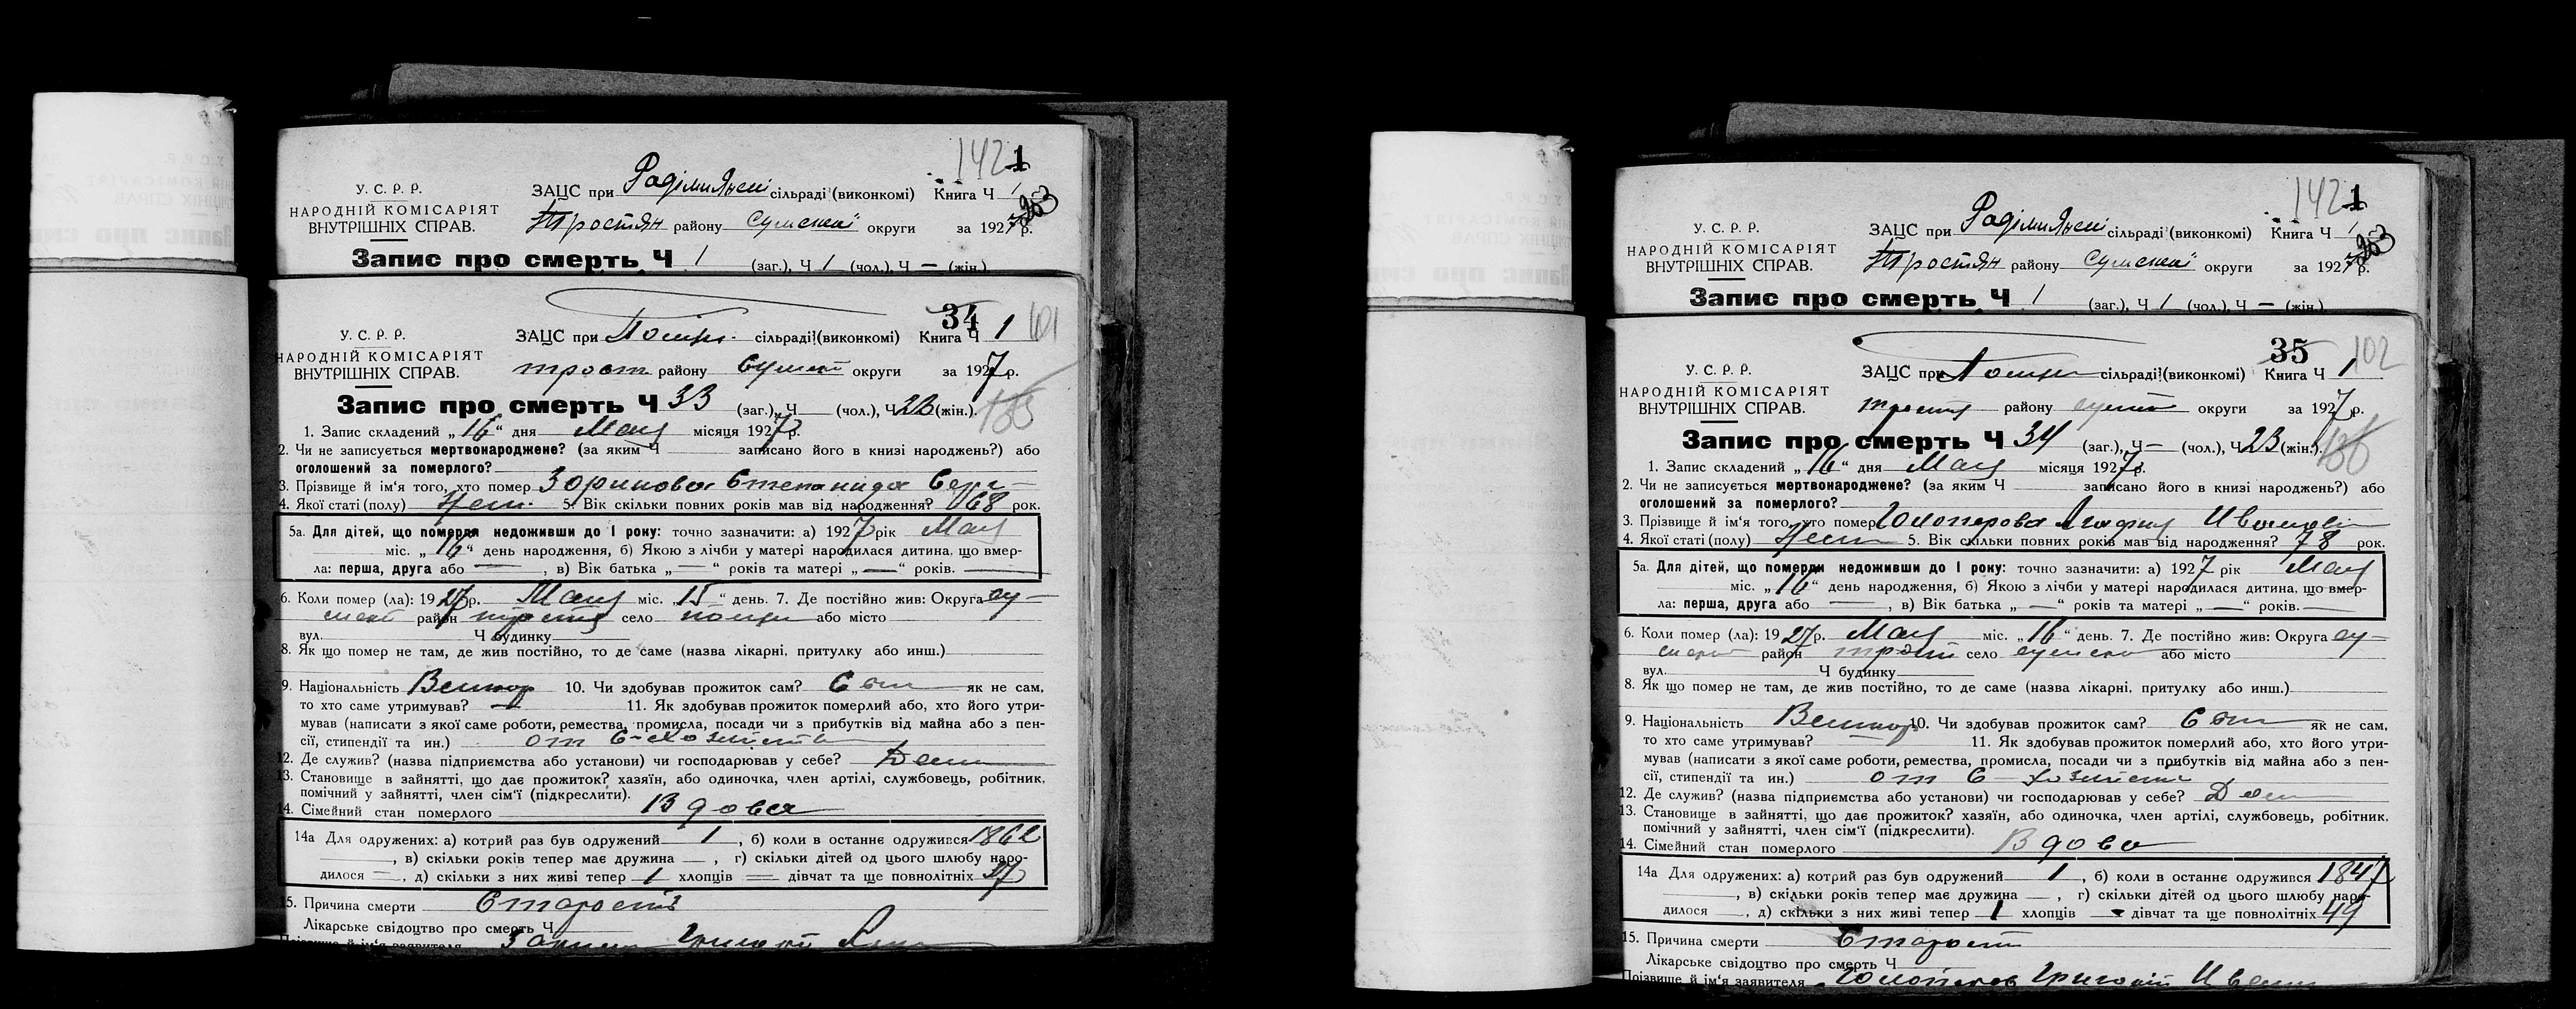 142 1
У. С. Р. Р.
НАРОДНІЙ КОМІСАРІЯТ
ВНУТРІШНІХ СПРАВ.
ЗАЦС при сільраді (виконкомі) Книга Ч 1
253
Тростян району Сумської округи за 1927 р.
Запис про смерть Ч 1 (заг.), Ч 1 (чол.), Ч — (жін.).
34 101
У. С. Р. Р.
НАРОДНІЙ КОМІСАРІЯТ
ВНУТРІШНІХ СПРАВ.
ЗАЦС при сільраді (виконкомі) Книга Ч 1
трост району Сумськ округи за 1927 р.
Запис про смерть Ч 33 (заг.), Ч (чол.), Ч 22 (жін.).
1. Запис складений „16“ дня Мая місяця 1927 р.
2. Чи не записується мертвонароджене? (за яким Ч записано його в книзі народжень?) або
оголошений за померлого?
3. Прізвище й ім'я того, хто помер Зорикова Степанида
4. Якої статі (полу) Жен. 5. Вік скільки повних років мав від народження? 68 рок.
5а. Для дітей, що померли недоживши до 1 року: точно зазначити: а) 1927 рік Мая
міс. „16“ день народження, б) Якою з лічби у матері народилася дитина, що вмер-
ла: перша, друга або —, в) Вік батька „—“ років та матері „—“ років.
6. Коли помер (ла): 1927 р. Мая міс. „15“ день. 7. Де постійно жив: Округа су-
район село або місто
вул. Ч будинку
8. Як що помер не там, де жив постійно, то де саме (назва лікарні, притулку або инш.)
9. Національність 10. Чи здобував прожиток сам? Сам як не сам,
то хто саме утримував? — 11. Як здобував прожиток померлий або, хто його утри-
мував (написати з якої саме роботи, ремества, промисла, посади чи з прибутків від майна або з пен-
сії, стипендії та ин.) от С-хозяйства
12. Де служив? (назва підприємства або установи) чи господарював у себе? Дома
13. Становище в зайнятті, що дає прожиток? хазяїн, або одиночка, член артілі, службовець, робітник,
помічний у зайнятті, член сім'ї (підкреслити).
14. Сімейний стан померлого Вдова
14а Для одружених: а) котрий раз був одружений 1, б) коли в останнє одружився 1862
, в) скільки років тепер має дружина —, г) скільки дітей од цього шлюбу наро-
дилося —, д) скільки з них живі тепер 1 хлопців — дівчат та ще повнолітніх
15. Причина смерти Старость
Лікарське свідоцтво про смерть Ч
Прізвище й ім'я заявителя
142 1
У. С. Р. Р.
НАРОДНІЙ КОМІСАРІЯТ
ВНУТРІШНІХ СПРАВ.
ЗАЦС при сільраді (виконкомі) Книга Ч 1
253
Тростян району Сумської округи за 1927 р.
Запис про смерть Ч 1 (заг.), Ч 1 (чол.), Ч — (жін.).
35 102
У. С. Р. Р.
НАРОДНІЙ КОМІСАРІЯТ
ВНУТРІШНІХ СПРАВ.
ЗАЦС при сільраді (виконкомі) Книга Ч 1
району округи за 1927 р.
Запис про смерть Ч 34 (заг.), Ч — (чол.), Ч 23 (жін.).
1. Запис складений „16“ дня Мая місяця 1927 р.
2. Чи не записується мертвонароджене? (за яким Ч записано його в книзі народжень?) або
оголошений за померлого?
3. Прізвище й ім'я того, хто помер Агафия
4. Якої статі (полу) Жен 5. Вік скільки повних років мав від народження? 78 рок.
5а. Для дітей, що померли недоживши до 1 року: точно зазначити: а) 1927 рік Мая
міс. „16“ день народження, б) Якою з лічби у матері народилася дитина, що вмер-
ла: перша, друга або —, в) Вік батька „—“ років та матері „—“ років.
6. Коли помер (ла): 1927 р. Мая міс. „16“ день. 7. Де постійно жив: Округа су-
район село або місто
вул. Ч будинку
8. Як що помер не там, де жив постійно, то де саме (назва лікарні, притулку або инш.)
9. Національність 10. Чи здобував прожиток сам? Сам як не сам,
то хто саме утримував? — 11. Як здобував прожиток померлий або, хто його утри-
мував (написати з якої саме роботи, ремества, промисла, посади чи з прибутків від майна або з пен-
сії, стипендії та ин.) от С-хозяйства
12. Де служив? (назва підприємства або установи) чи господарював у себе? Дома
13. Становище в зайнятті, що дає прожиток? хазяїн, або одиночка, член артілі, службовець, робітник,
помічний у зайнятті, член сім'ї (підкреслити).
14. Сімейний стан померлого Вдова
14а Для одружених: а) котрий раз був одружений 1, б) коли в останнє одружився 1847
, в) скільки років тепер має дружина —, г) скільки дітей од цього шлюбу наро-
дилося —, д) скільки з них живі тепер 1 хлопців - дівчат та ще повнолітніх 49
15. Причина смерти Старость
Лікарське свідоцтво про смерть Ч
Прізвище й ім'я заявителя Григорій Иван